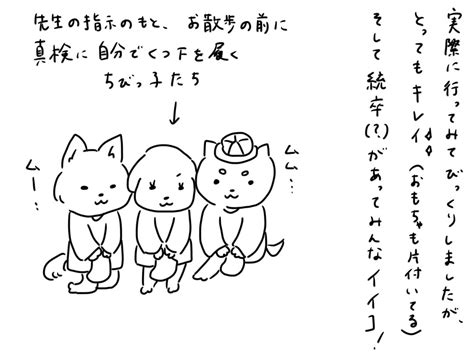 実際に行ってみてびっくりしましたが、
とってもキレイ(おもちゃも片付いてる)
そして統卒(?)があってみんなイイコ!
先生の指示のもと、お散歩の前に
真検に自分でくつ下を履く
ちびっ子たち
ムム…
ムー…